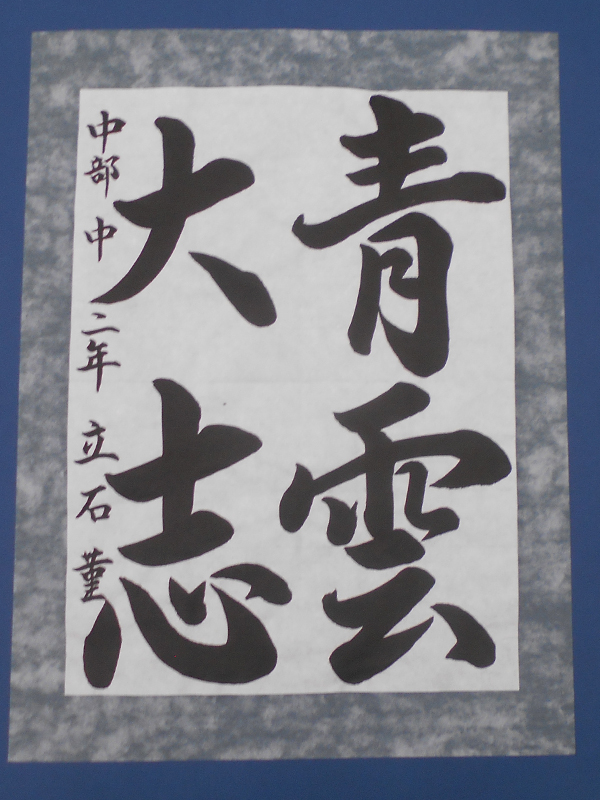 青雲
大志
中部中二年立石菫